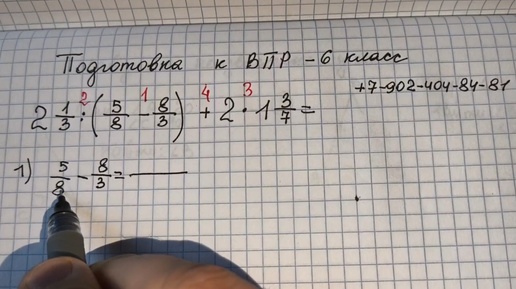 Подготовка к ВПР – 6 класс
+7-902-404-84-81
2 1/3 : (5/8 - 8/3) + 2 · 1 3/7 =
2 1 4 3
1) 5/8 - 8/3 =